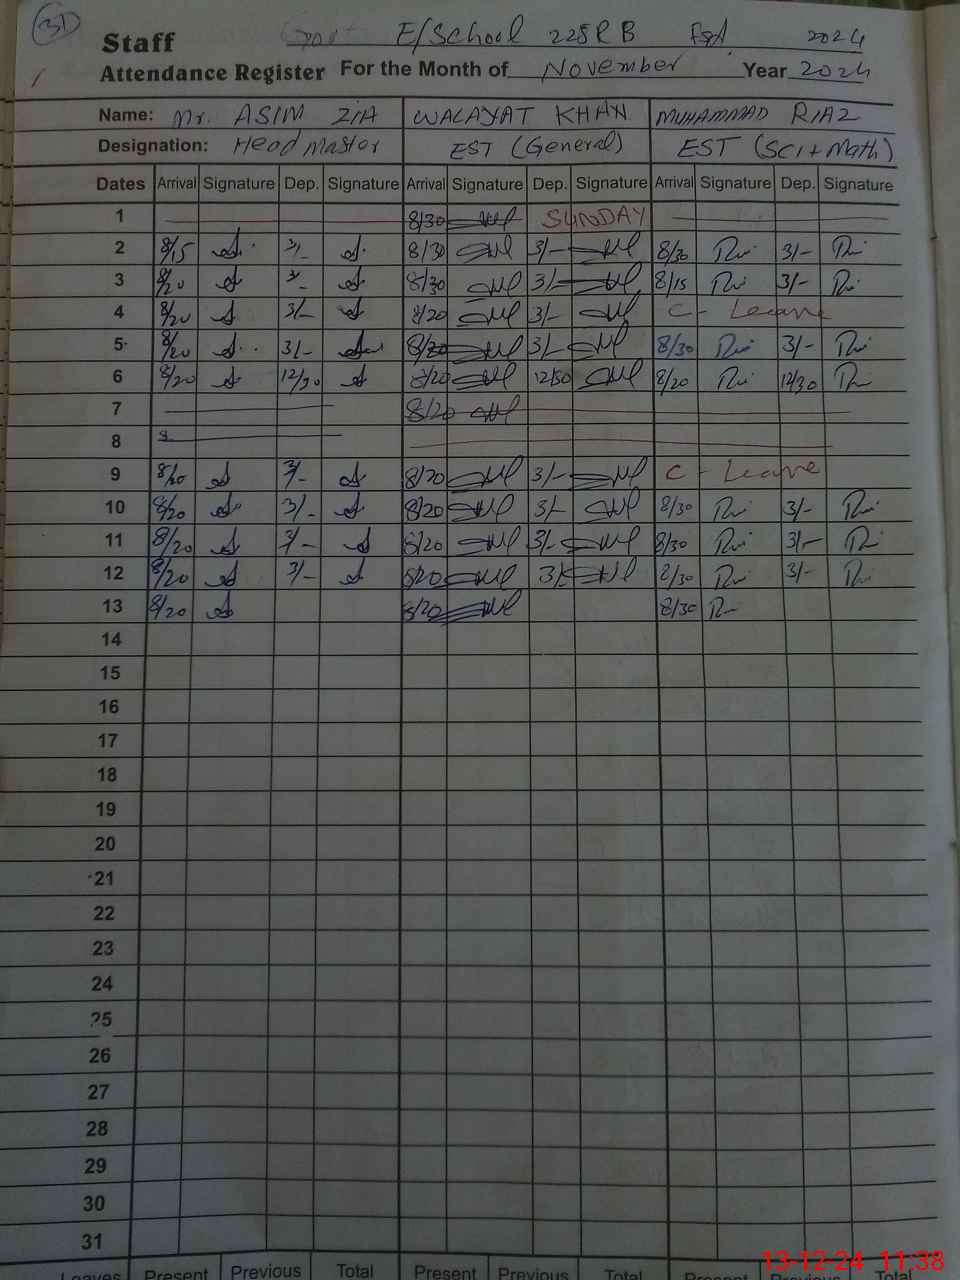 31
Govt E/School 228RB Fsd 2024
Staff
Attendance Register For the Month of November Year 2024
Name: Mr. ASIM ZIA WALAYAT KHAN MUHAMMAD RIAZ
Designation: Head Master EST (General) EST (Sci+Math)
Dates Arrival Signature Dep. Signature Arrival Signature Dep. Signature Arrival Signature Dep. Signature
1 8/30 SUNDAY
2 8/15 3/- 8/30 3/- 8/30 3/-
3 8/20 3/- 8/30 3/- 8/15 3/-
4 8/20 3/- 8/20 3/- C- Leave
5 8/20 3/- 8/20 3/- 8/30 3/-
6 8/20 12/30 8/20 12/30 8/20 12/30
7 8/20
8
9 8/20 3/- 8/20 3/- C- Leave
10 8/20 3/- 8/20 3/- 8/30 3/-
11 8/20 3/- 8/20 3/- 8/30 3/-
12 8/20 3/- 8/20 3/- 8/30 3/-
13 8/20 8/20 8/30
14
15
16
17
18
19
20
21
22
23
24
25
26
27
28
29
30
31
Leaves Present Previous Total Present Previous Total Present Previous Total
13-12-24 11:38